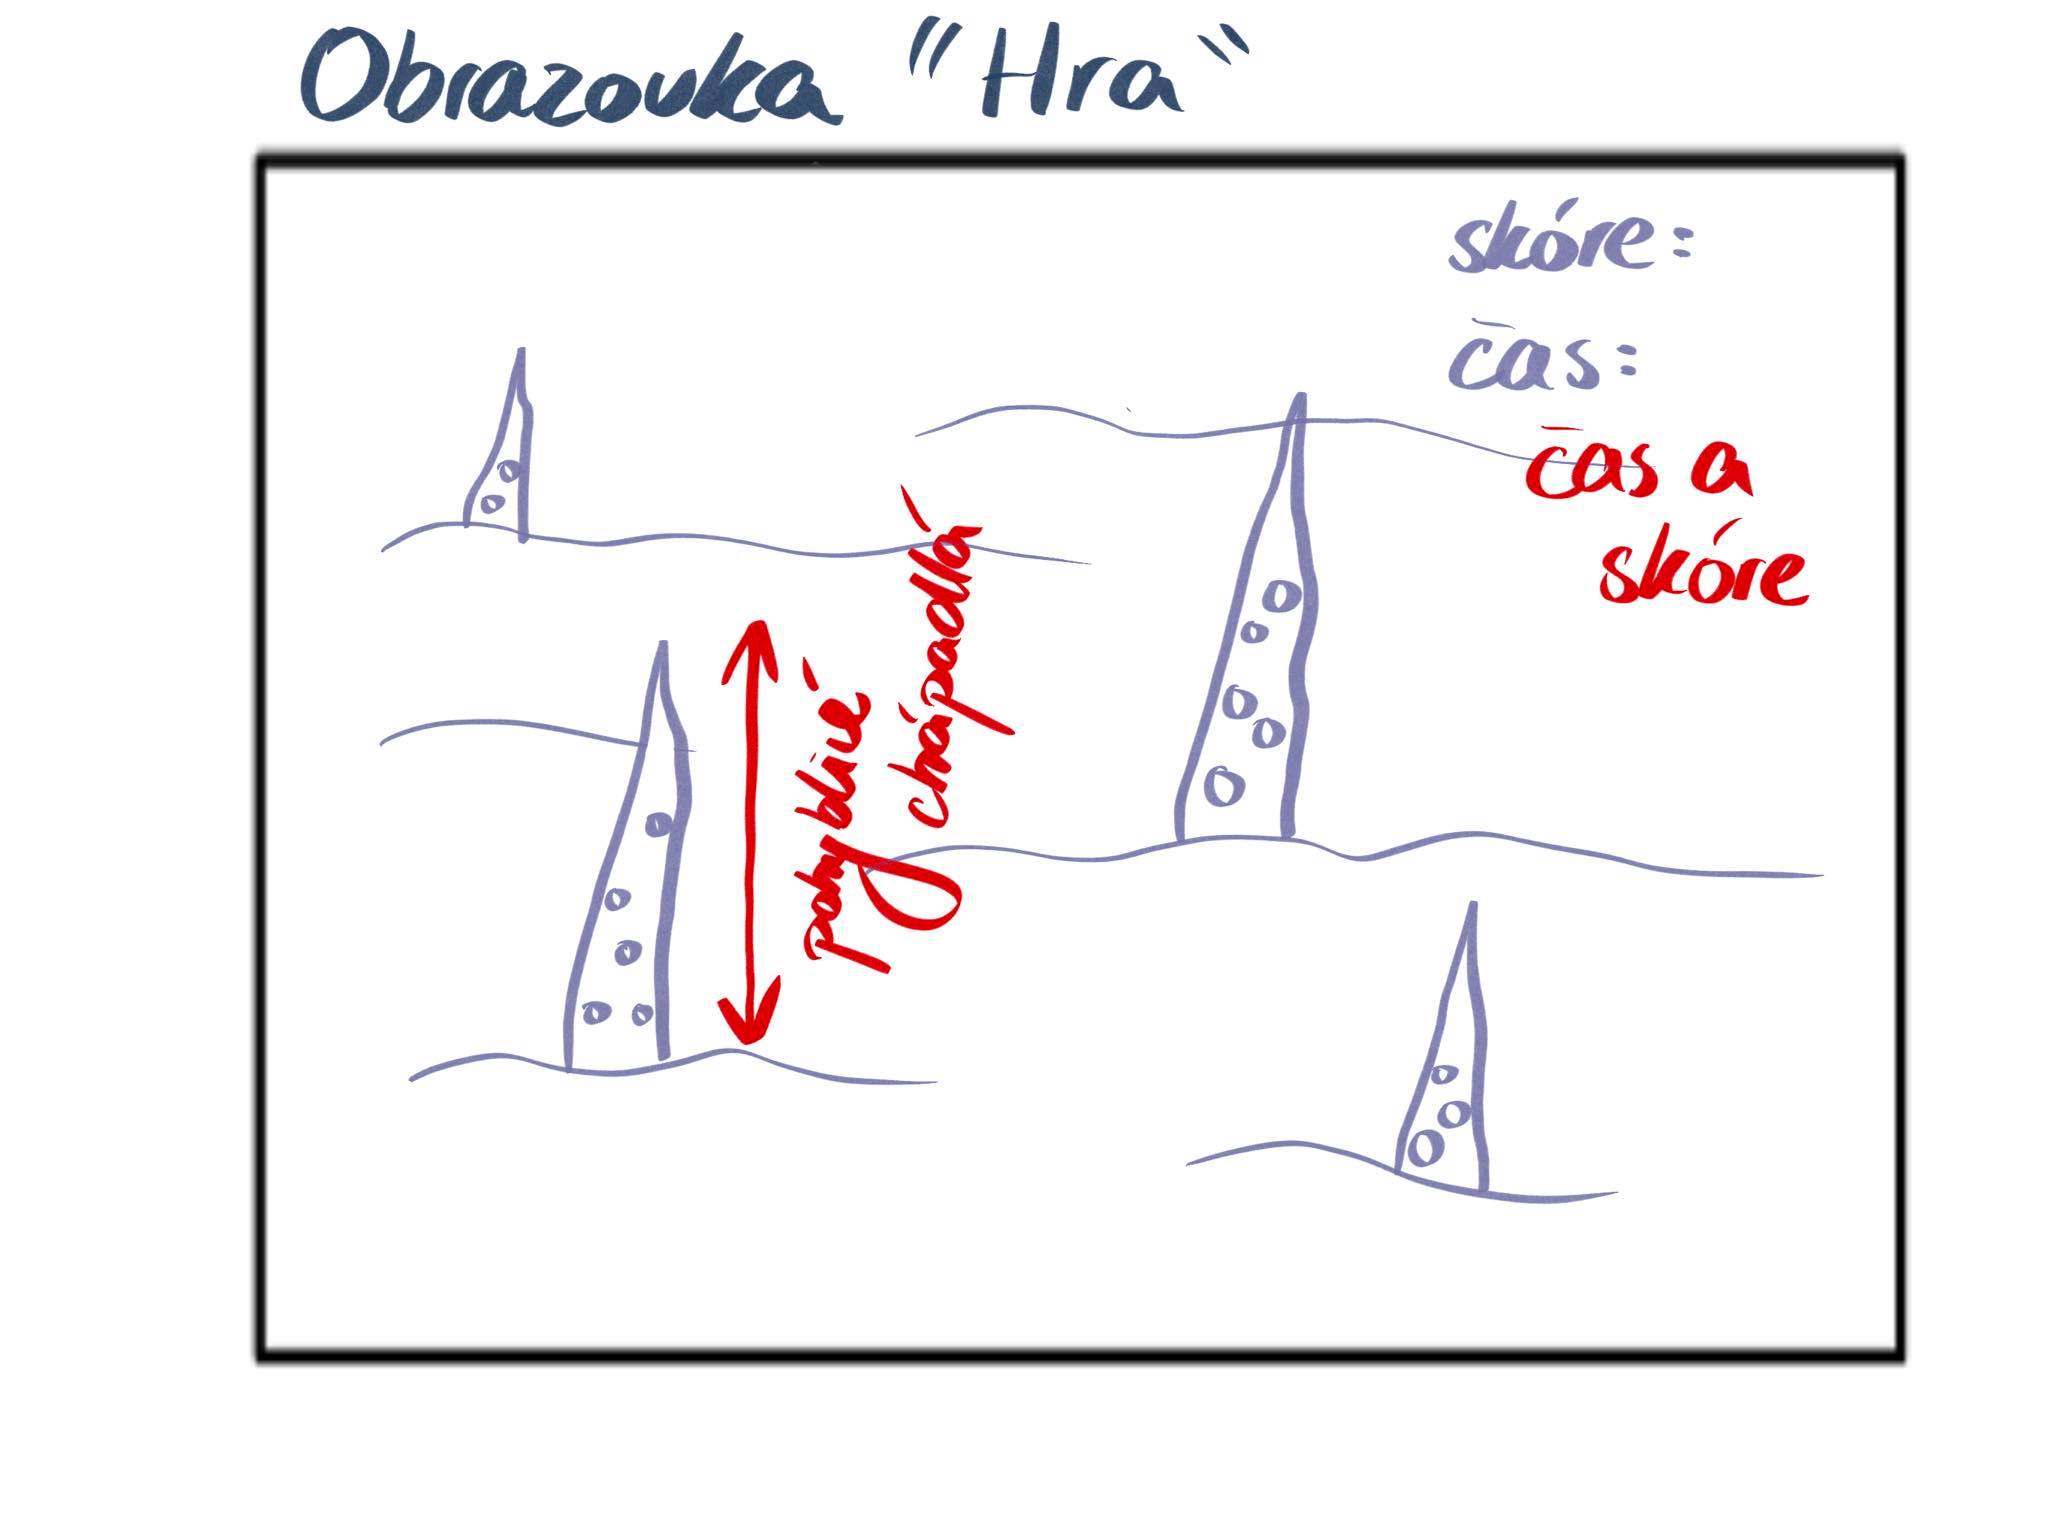 Obrazovka "Hra"
skóre:
čas:
čas a
skóre
pohyblivé
chápadlá